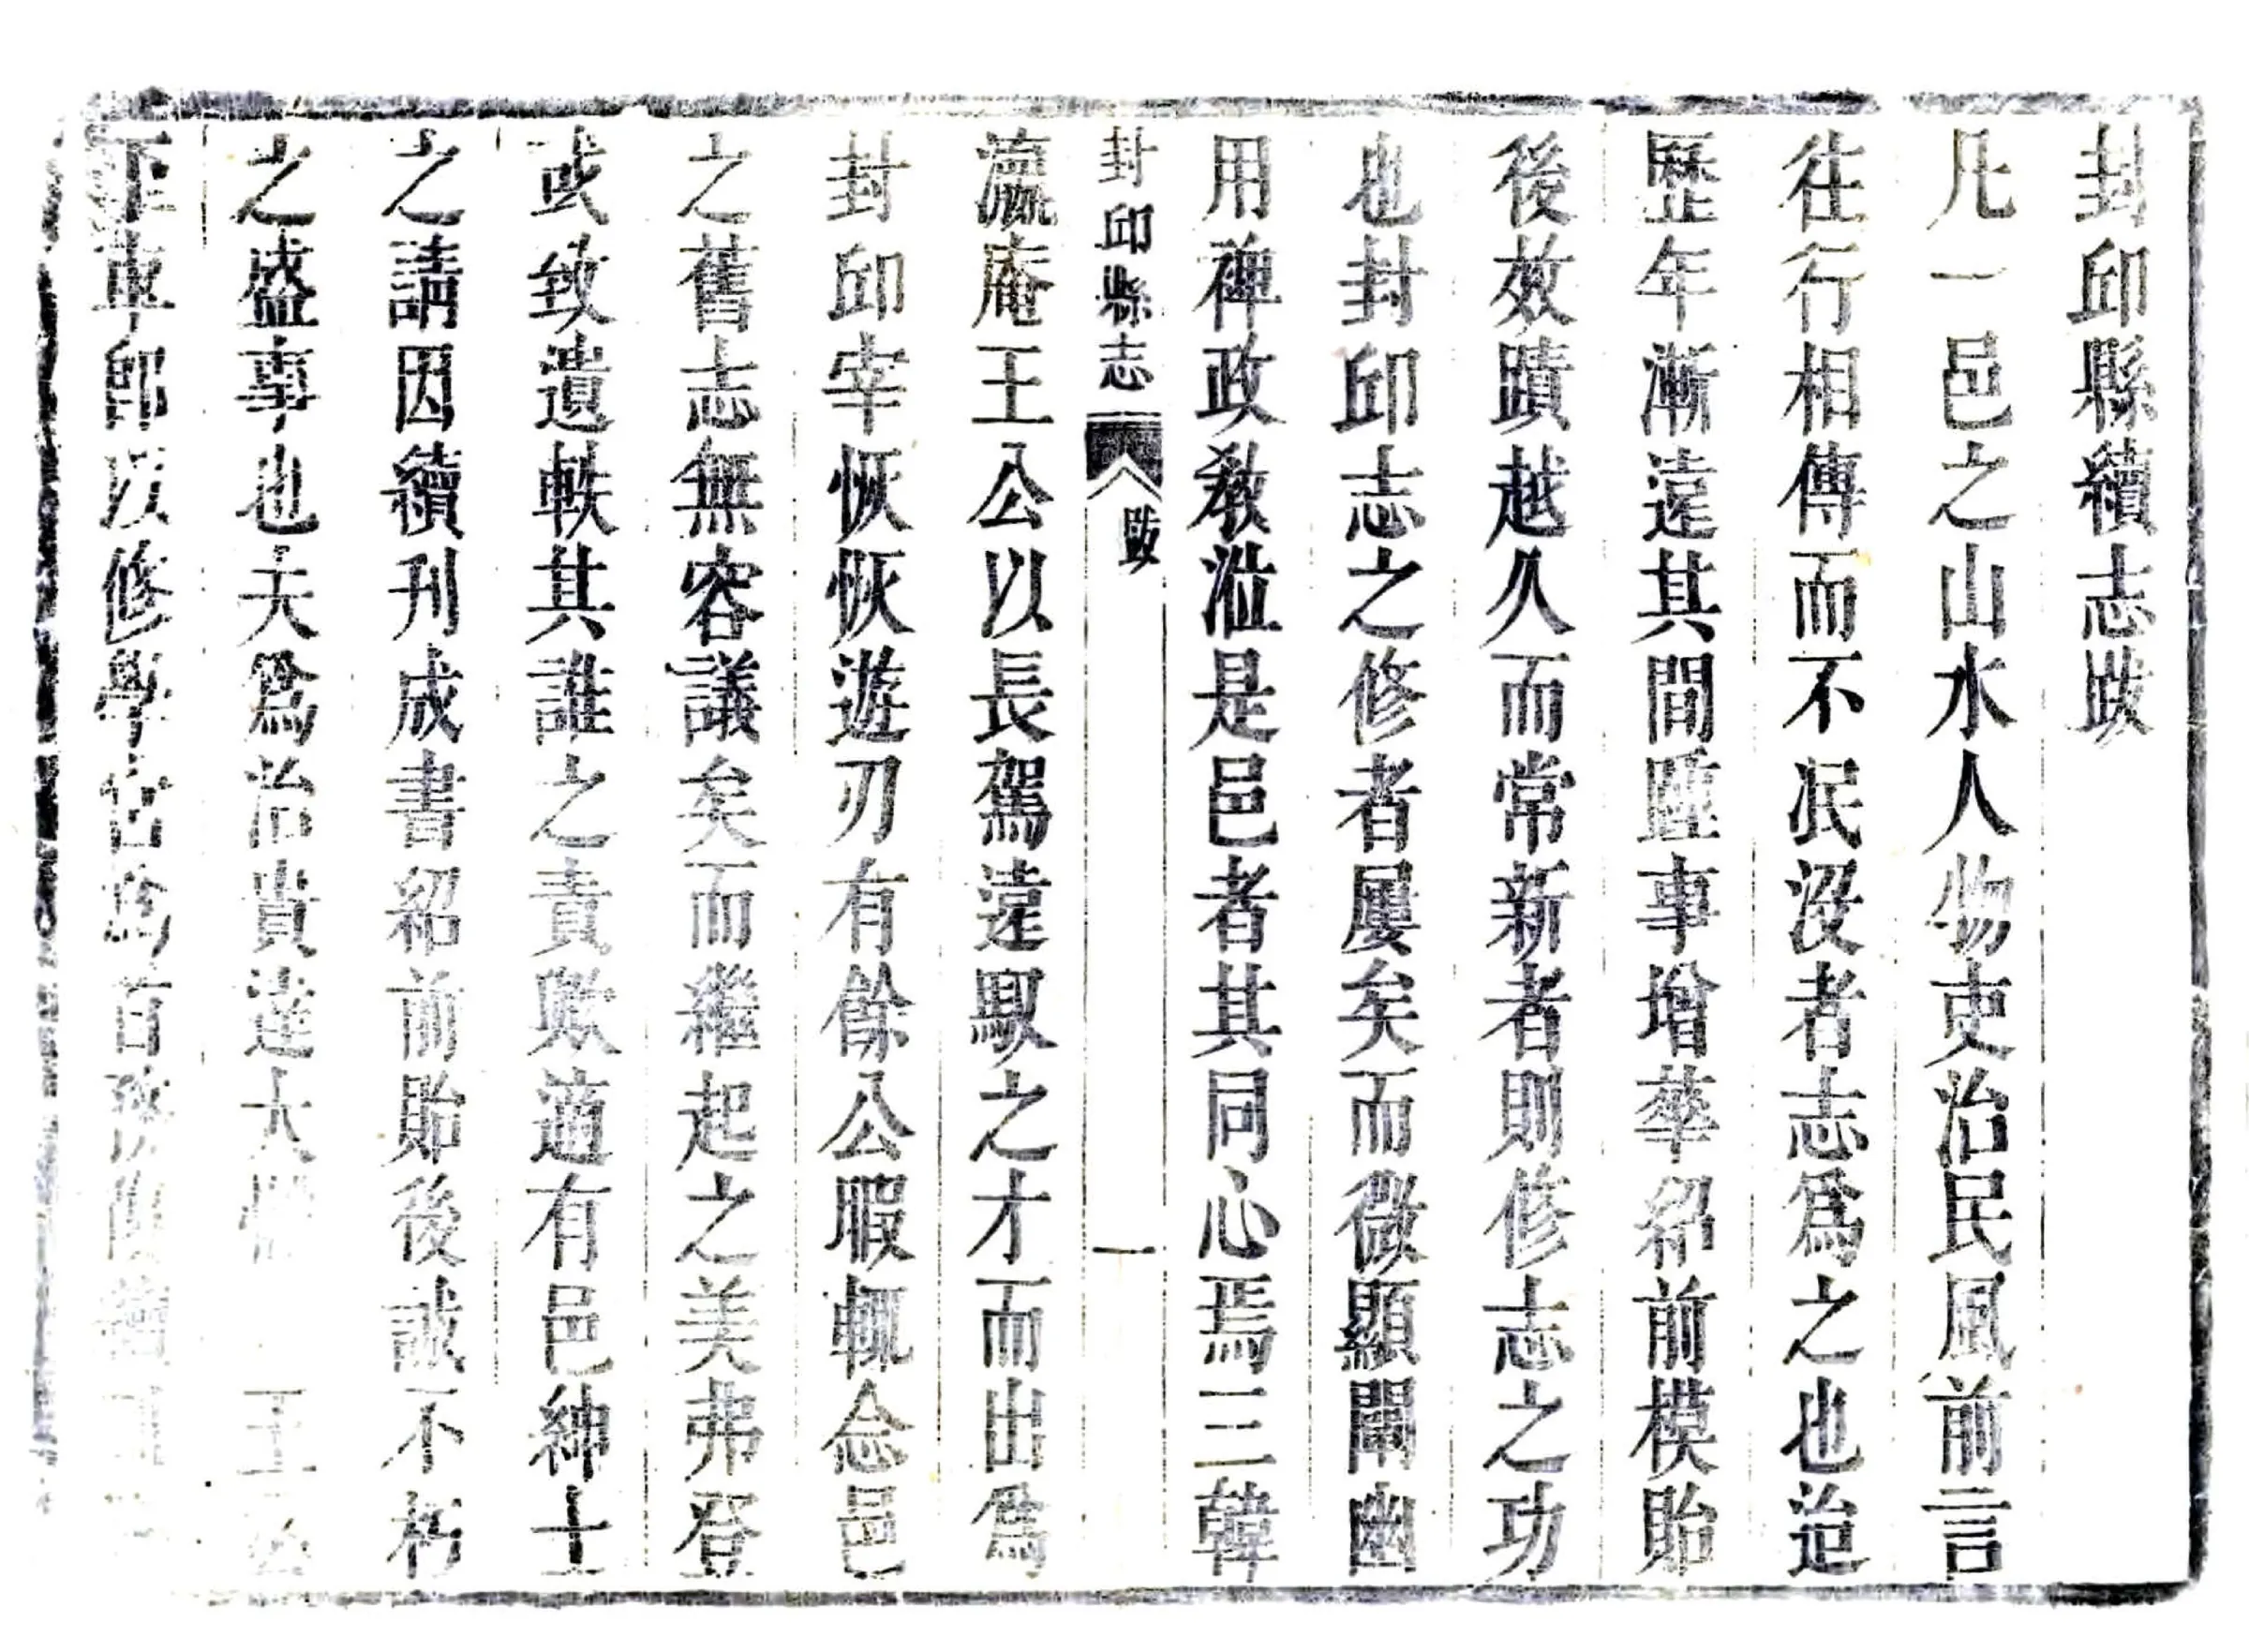 封邱縣續志跋
凡一邑之山水人物吏治民風前言
往行相傳而不泯沒者志爲之也迨
歷年漸遠其間踵事增華紹前模貽
後效蹟越久而常新者則修志之功
也封邱志之修者屢矣而微顯闡幽
用裨政敎涖是邑者其同心焉三韓
封邱縣志 跋 一
瀛庵王公以長駕遠馭之才而出爲
封邱宰恢恢遊刃有餘公暇輒念邑
之舊志無容議矣而繼起之美弗登
或致遺軼其誰之責歟適有邑紳士
之請因續刊成書紹前貽後誠不朽
之盛事也夫爲治貴達大體 王公
下車卽以修學宮爲首務